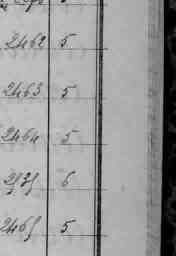 2462 5
2463 5
2464 5
6
2465 5